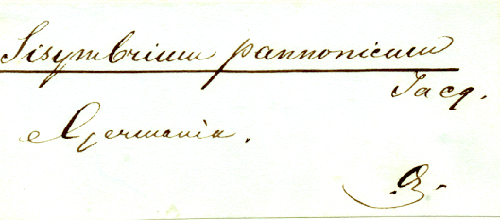 Sisymbrium pannonicum
Jacq.
Germania.